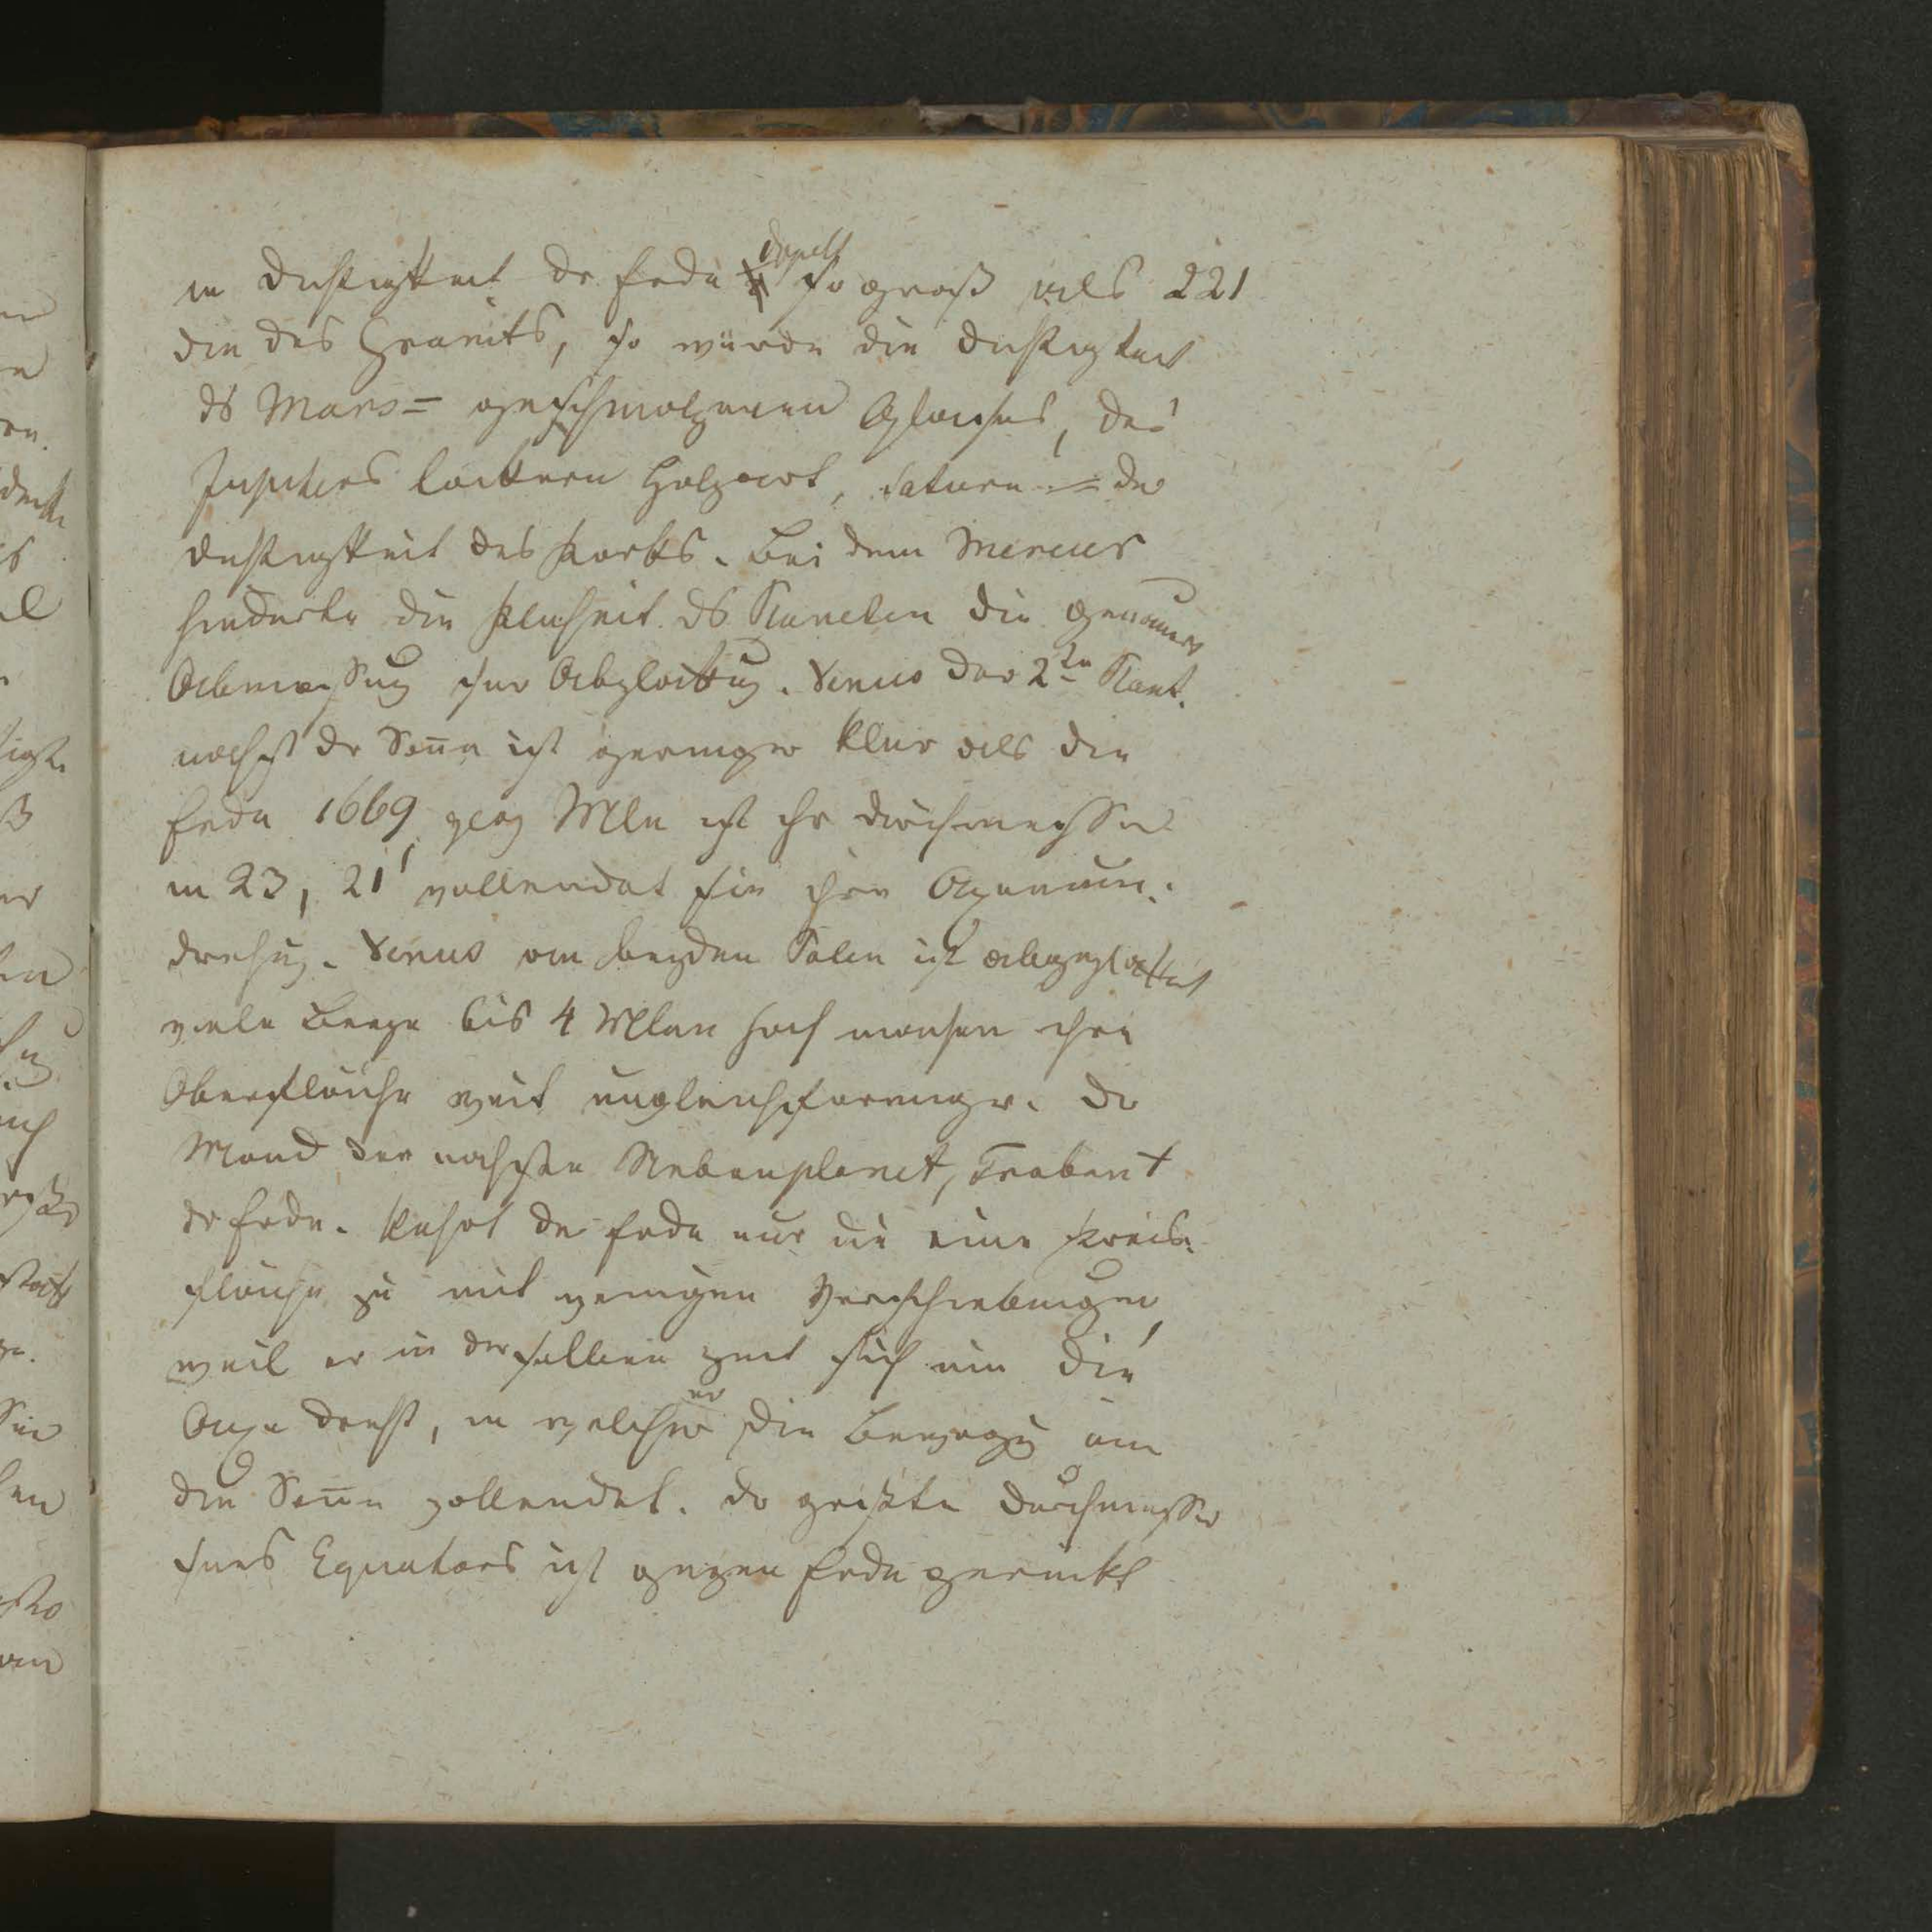 in Dichtigkeit dr Erde dopelt so groß als 221
die des Granits, so würde die Dichtigkeit
ds Mars = geschmolzenen Glases, des
Jupiters lockern Holzart, Saturn = der
Dichtigkeit des Korks. Bei dem Mercur
hinderte die Kleinheit ds Planeten die genauere
Abmessung der Abplattung. Venus der 2te Planet.
nächst dr Sonne ist geringer kleiner als die
Erde 1669 geog Mlen ist ihr Durchmesser
in 23, 21' vollendet sie ihre Axenum-
drehung. Venus an beyden Polen ist abgeplattet
viele Berge bis 4 Mlen hoch machen ihre
Oberfläche weit ungleichförmiger. Dr
Mond der nächste Nebenplanet, Trabant
dr Erde. kehrt der Erde nur die eine Kreis-
fläche zu mit wenigen Verschiebungen,
weil er in derselben Zeit sich um die
Axe dreht, in welcher er die Bewegung um
die Sonne vollendet. Dr größte Durchmesser
seines Equators ist gegen Erde gerückt